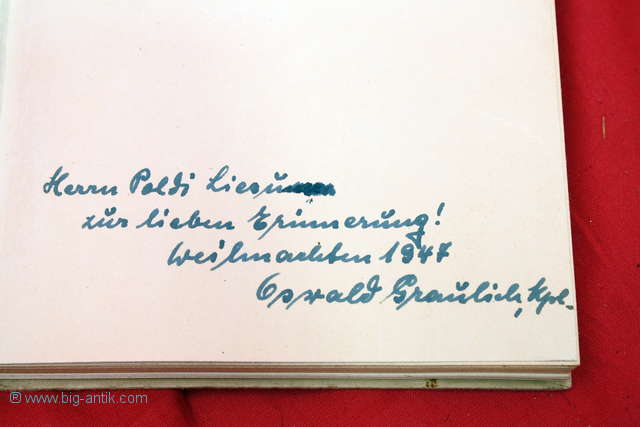 Herrn Poldi
zur lieben Erinnerung!
Weihnachten 1947
Oswald Graulich, Kpl.
® www.big-antik.com